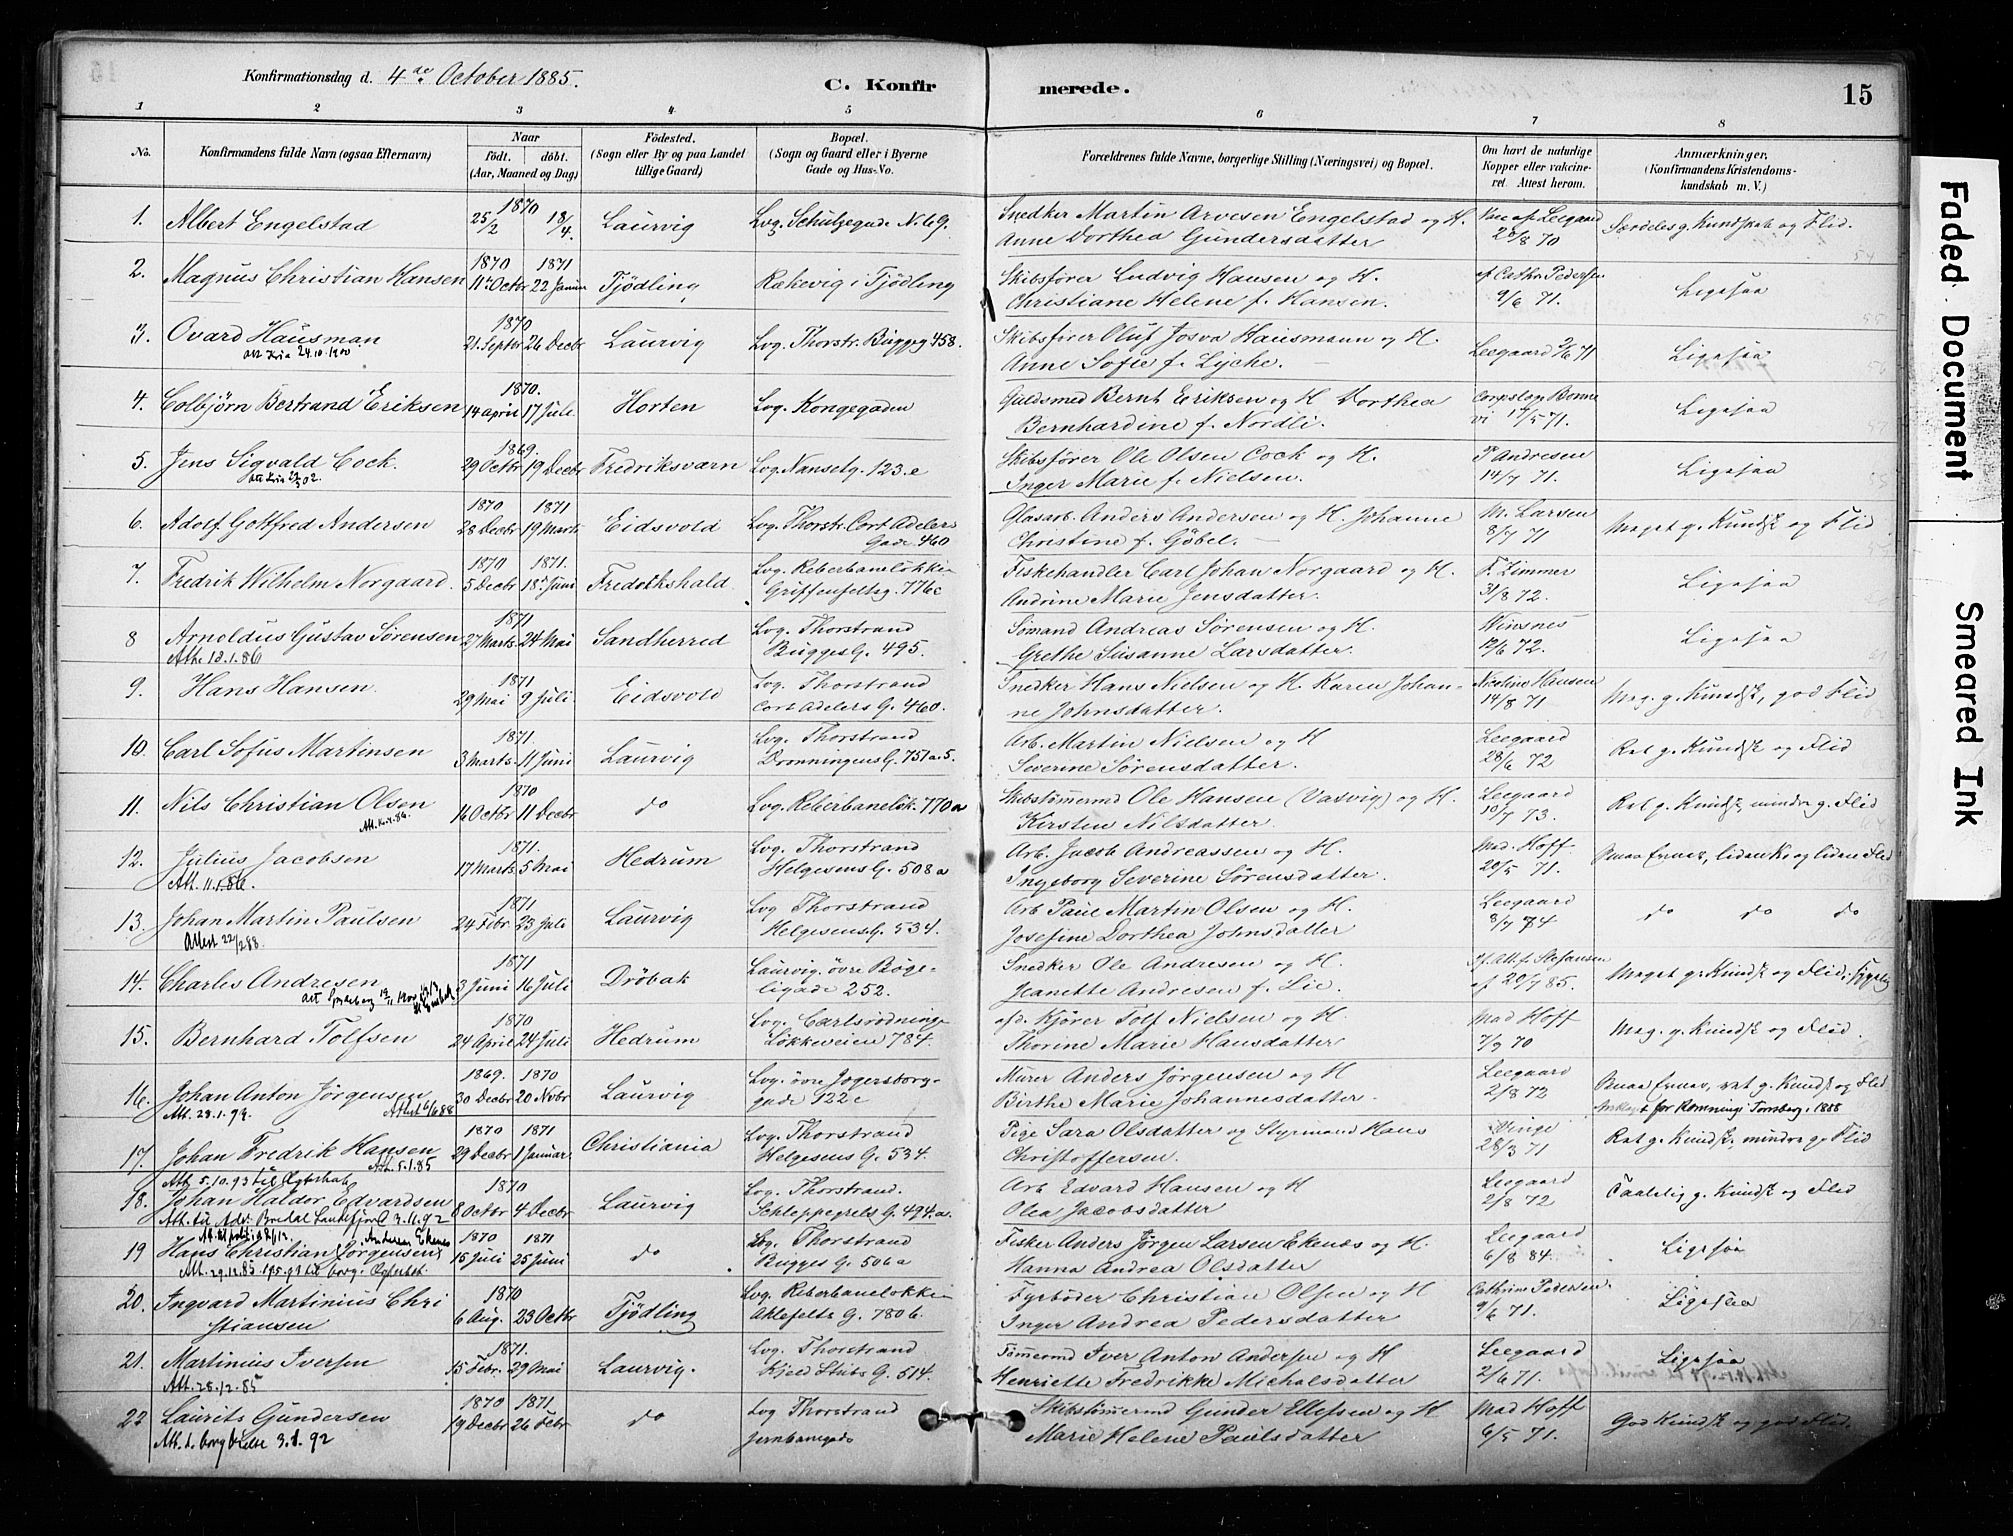 Konfirmationsdag d. 4de October 1885.
C. Konfir merede.
15
1 2 3 4 5 6 7 8
No.
Konfirmandens fulde Navn (ogsaa Efternavn)
Naar
født. døbt.
(Aar, Maaned og Dag)
Fødested.
(Sogn eller By og paa Landet
tillige Gaard)
Bopæl.
(Sogn og Gaard eller i Byerne
Gade og Hus-No.
Forældrenes fulde Navne, borgerlige Stilling (Næringsvei) og Bopæl.
Om havt de naturlige
Kopper eller vakcine-
ret. Attest herom.
Anmærkninger,
(Konfirmandens Kristendoms-
kundskab m. V.)
1. Albert Engelstad 1870 25/2 18/4. Laurvig Lvg. Schultzegade N. 69. Snedker Martin Arvesen Engelstad og H. Anne Dorthea Gundersdatter Vac. af Leegaard 28/8 70 Særdeles g. Kundskab og Flid.
2. Magnus Christian Hansen 1870 11te Octbr 1871 22 Januar Tjödling Rækevig i Tjödling Skibsfører Ludvig Hansen og H. Christiane Helene f. Hansen. af Cathr. Pedersen 9/6 71. Ligesaa
3. Ovard Hausman 1870 21. Septbr 26 Decbr Laurvig Lvg. Thorstr. Buggeg 458. Skibsfører Oluf Josva Hausmann og H. Anne Sofie f. Lyche. Leegaard 2/6 71 Ligesaa
att Kria 24.10.1900
4. Colbjörn Bertrand Eriksen 1870. 14 april 17 Juli Horten Lvg. Kongegaden Guldsmed Bernt Eriksen og H Dorthea Bernhardine f. Nordli. Corpslæge Bonne vi 17/5 71. Ligesaa
5. Jens Sigvald Cock. 1869. 29 Octbr 19 Decbr Fredriksværn Lvg. Nansetg. 123.e Skibsfører Ole Olsen Cock og H. Inger Marie f. Nielsen. P Andresen 14/7 71. Ligesaa
6. Adolf Gottfred Andersen 1870 28 Decbr 1871 19 Marts Eidsvold Lvg. Thorstr. Cort Adelers Gade. 460 Glasarb. Anders Andersen og H. Johanne Christine f. Göbel. M. Larsen 8/7 71 Meget g. Kundsk og Flid
7. Fredrik Wilhelm Norgaard. 1870 5 Decbr 1871. 18de Juni Fredrikshald Lvg. Reberbaneløkken Griffenfeltsg. 776c Fiskehandler Carl Johan Norgaard og H. Andrine Marie Jensdatter. F. Zimmer 31/8 72. Ligesaa
8 Arnoldus Gustav Sørensen 1871 27 Marts 24 Mai Sandherred Lvg. Thorstrand Bugges G. 495. Sømand Andreas Sørensen og H. Grethe Susanne Larsdatter. Winsnes 12/6 72. Ligesaa
Att. 13.1.86
9. Hans Hansen. 1871 29 Mai 9 Juli. Eidsvold Lvg. Thorstrand Cort Adelers G. 460. Snedker Hans Nielsen og H. Karen Johanne Johnsdatter. Nicoline Hansen 14/8 71 Meg. g. Kundsk, god Flid
10. Carl Sofus Martinsen 1871 3 Marts 11 Juni Laurvig Lvg. Thorstrand Dronningens G. 751 a. 5. Arb. Martin Nielsen og H Severine Sørensdatter. Leegaard 28/6 72 Ret g. Kundsk og Flid
11. Nils Christian Olsen 1870 16 Octbr 11 Decbr do Lvg. Reberbaneløk. 770a Skibstømermd Ole Hansen (Vasvig) og H. Kirsten Nilsdatter. Leegaard 10/7 73. Ret g. Kundsk, mindre g. Flid
12. Julius Jacobsen 1871. 17 Marts 5 Mai Hedrum Lvg. Thorstrand Helgesens G. 508 a Arb. Jacob Andreassen og H. Ingeborg Severine Sørensdatter. Mad. Hoff 20/5 71.
Att. 11.1.86.
13. Johan Martin Paulsen 1871 24 Febr. 23 Juli Laurvig Lvg Thorstrand Helgesens G. 534. Arb Paul Martin Olsen og H. Josefine Dorthea Johnsdatter Leegaard 3/7 74 do do do
Attest 22/2 88.
14. Charles Andresen 1871 3 Juni 16 Juli Dröbak Laurvig. øvre Bøgeligade 252. Snedker Ole Andresen og H. Jeanette Andresen f. Lie. af 20/7 85. Meget g. Kundsk og Flid;
15. Bernhard Tolfsen 1870 24 April 24 Juli Hedrum Lvg. Carlsrødninge Løkkeveien 784. afd. Kjører Tolf Nielsen og H. Thorine Marie Hansdatter Mad Hoff 7/9 70 Meg. g. Kundsk og Flid.
16. Johan Anton Jørgensen 1869. 30 Decbr 1870 20 Novbr Laurvig Lvg. øvre Jegersborggade 122c Murer Anders Jørgensen og H Birthe Marie Johannesdatter. Leegaard 2/8 72 ret g. Kundsk og Flid
Att. 28.1.99. Attest 6/6 88
17. Johan Fredrik Hansen 1870 29 Decbr 1871 1 Januar. Christiania Lvg. Thorstrand Helgesens G. 534. Pige Sara Olsdatter og Styrmand Hans Christoffersen. Winge 28/3 71 Ret g. Kundsk, mindre g. Flid
Att. 5.1.85
Att. 5.10.93 til Ægteskab
18. Johan Haldor Edvardsen 1870 8 Octbr 4 Decbr Laurvig Lvg. Thorstrand. Schleppegrels G. 494.a. Arb Edvard Hansen og H Olea Jacobsdatter Leegaard 2/8 72 Taalelig g. Kundsk og Flid
19 Hans Christian Jørgensen 1870 15 Juli 1871 25 Juni do Lvg. Thorstrand Bugges G. 506 a Fisker Anders Jørgen Larsen Ekenes og H. Hanna Andrea Olsdatter Leegaard 6/8 84. Ligesaa
20. Ingvard Martinius Christiansen 1870 6 Aug. 23 Octbr Tjödling Lvg. Reberbaneløkken Ahlefelts G. 780 b. Fyrbøder Christian Olsen og H Inger Andrea Pedersdatter Cathrine Pedersen 9/6 71. Ligesaa
21. Martinius Iversen 1871. 15 Febr. 29 Mai Laurvig. Lvg. Thorstrand Kjeld Stubs G. 514. Tømermd Iver Anton Andersen og H Henriette Fredrikke Michalsdatter Leegaard 2/6 71. Ligesaa
Att. 28.12.85
22 Laurits Gundersen 1870 19 Decbr 1871 26 Febr. do Lvg Thorstrand Jernbanegade Skibstømermd Gunder Ellefsen og H Marie Helene Paulsdatter Mad Hoff 6/5 71. God Kundsk og god Flid.
Faded Document
Smeared Ink